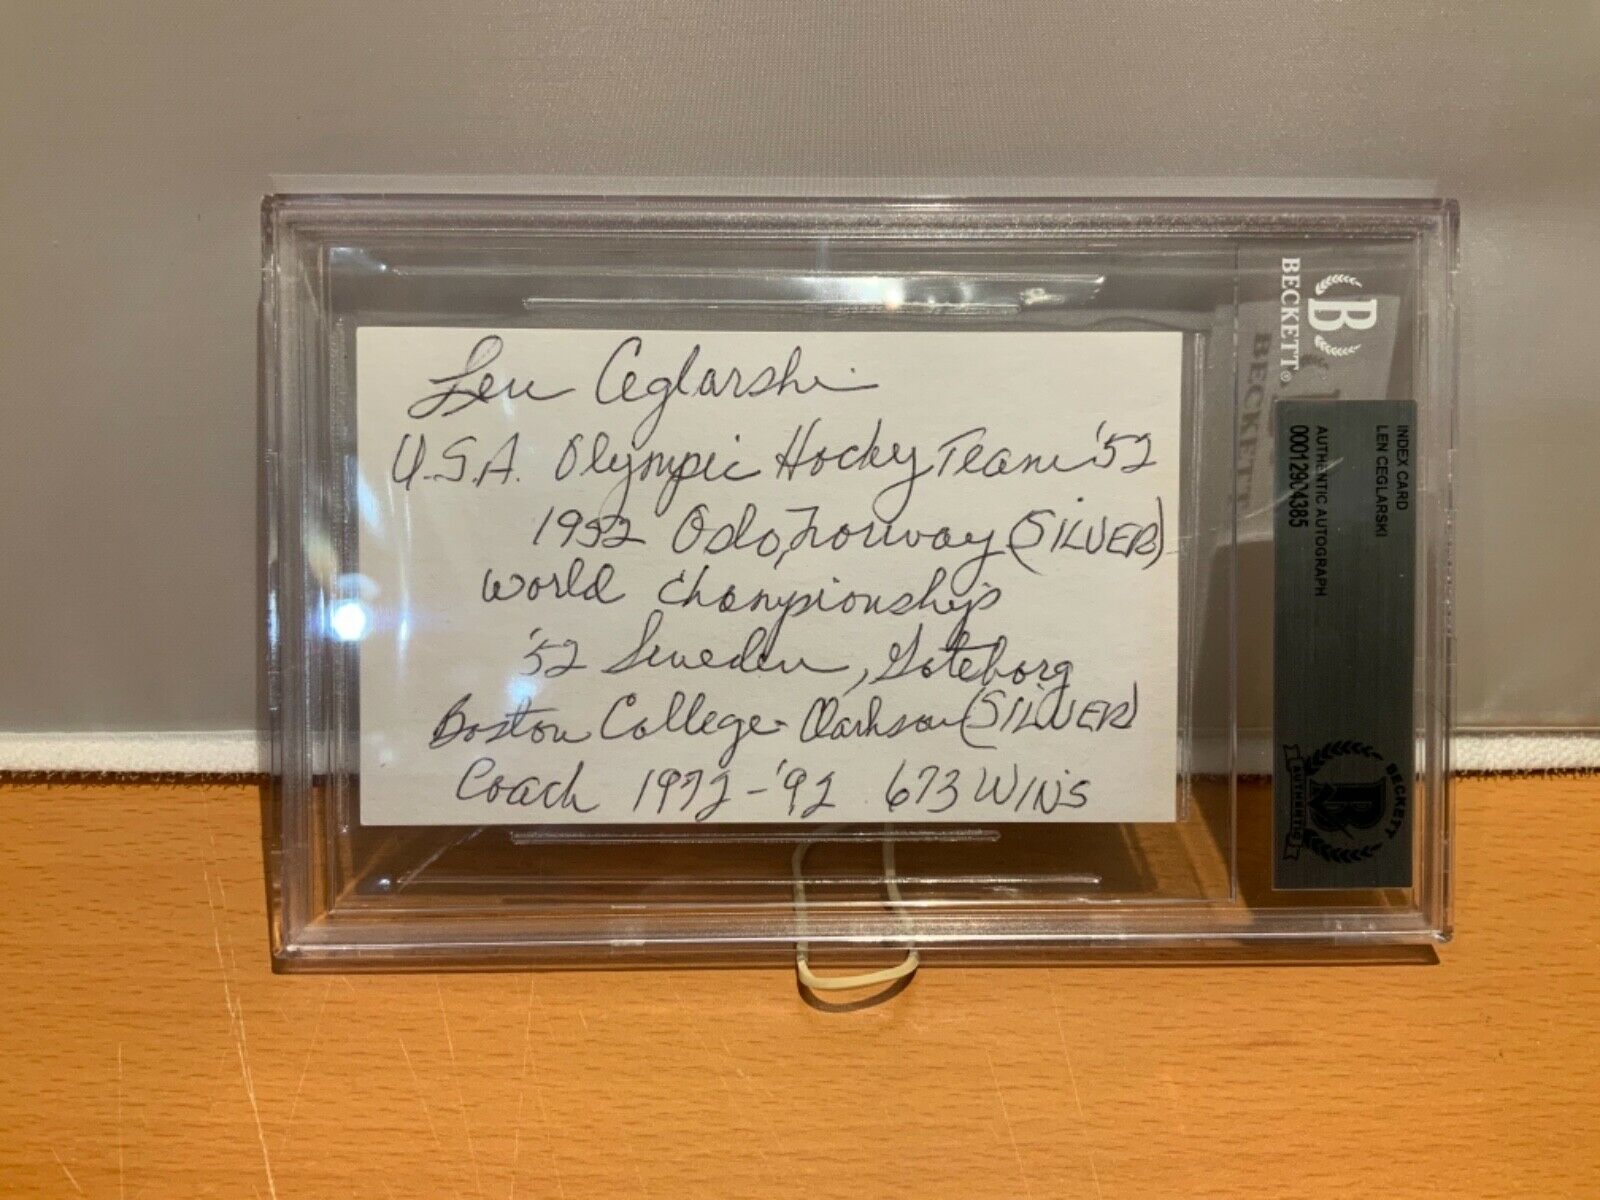 Len Ceglarski
U.S.A. Olympic Hockey Team '52
1952 Oslo, Norway (SILVER)
World Championships
'52 Sweden, Goteborg
Boston College - Clarkson (SILVER)
Coach 1972-'92 673 WINS
BECKETT®
B
BECKETT
INDEX CARD
LEN CEGLARSKI
AUTHENTIC AUTOGRAPH
00012904385
BECKETT
B
AUTHENTIC